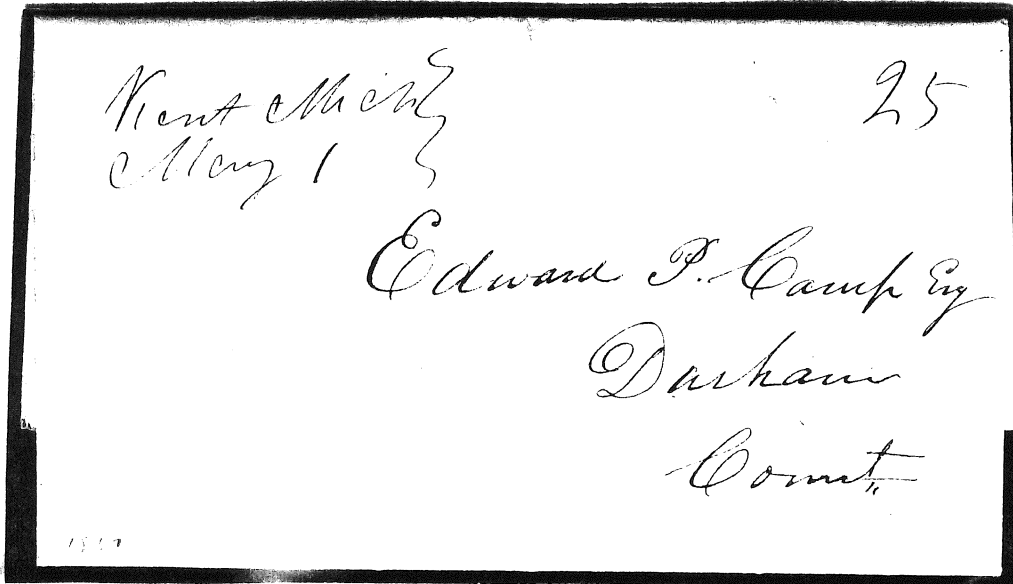 Kent Mich
May 1
25
Edward P. Camp Esq
Durham
Connt.